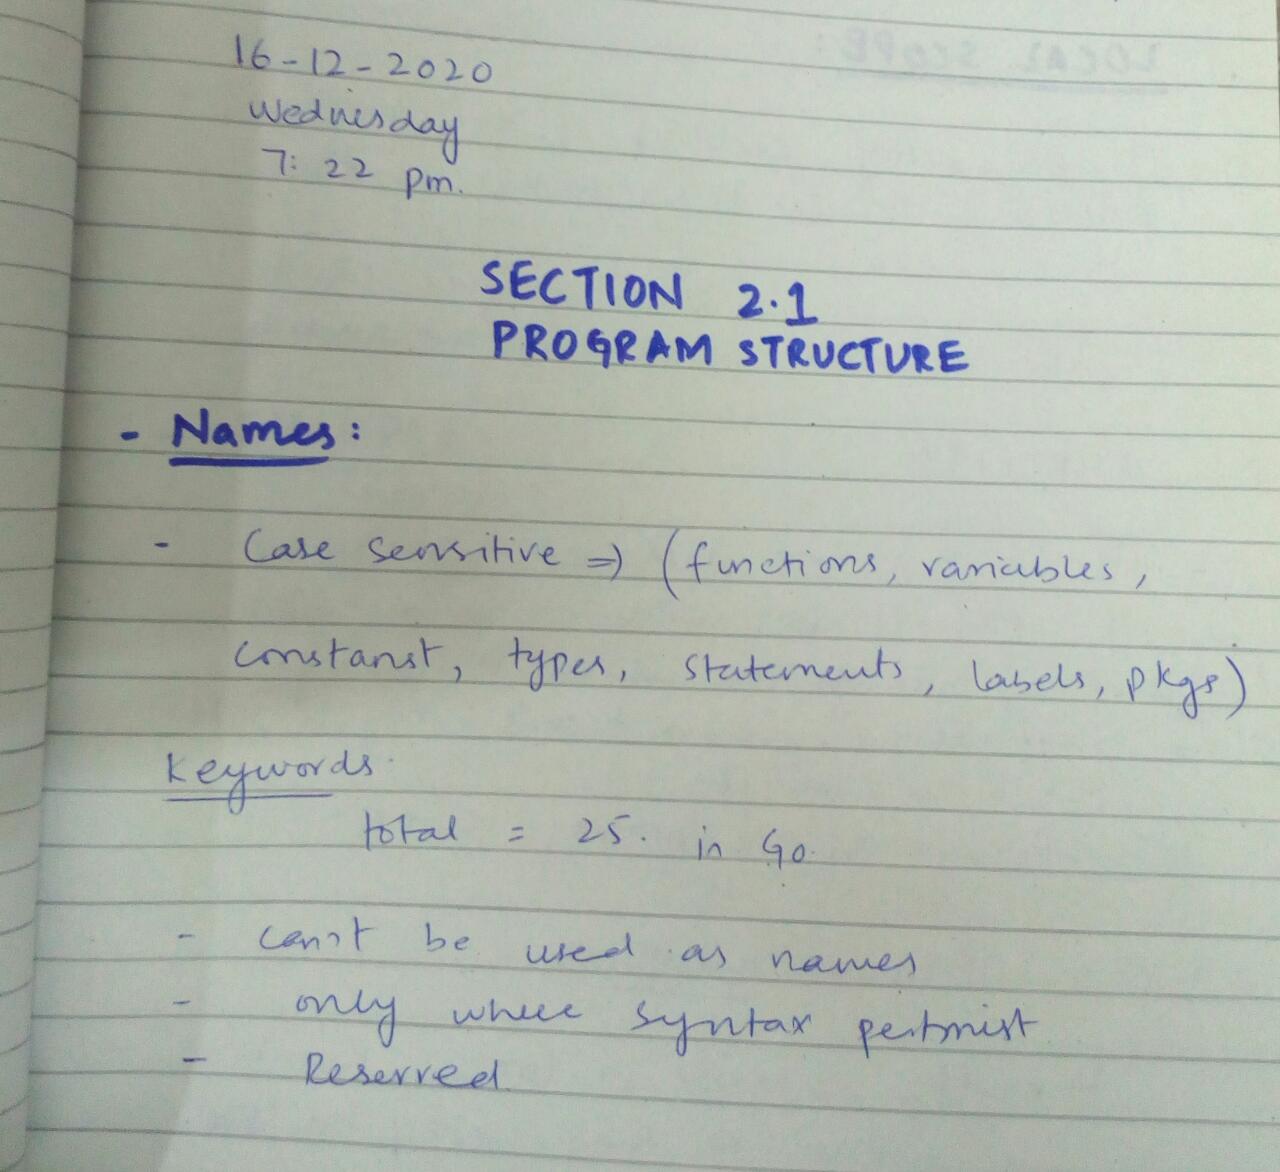 16-12-2020
Wednesday
7:22 pm.
SECTION 2.1
PROGRAM STRUCTURE
- Names:
- Case sensitive => (functions, variables,
constanst, types, statements, labels, pkgs)
Keywords.
total = 25. in Go.
- can't be used as names
- only where syntax
- Reserved
LOCAL SCOPE: